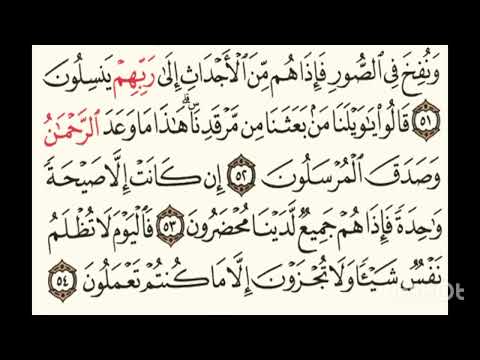 وَنُفِخَ فِي الصُّورِ فَإِذَا هُم مِّنَ الْأَجْدَاثِ إِلَىٰ رَبِّهِمْ يَنسِلُونَ
٥١ قَالُوا يَاوَيْلَنَا مَن بَعَثَنَا مِن مَّرْقَدِنَا ۗ هَٰذَا مَا وَعَدَ الرَّحْمَٰنُ
وَصَدَقَ الْمُرْسَلُونَ ٥٢ إِن كَانَتْ إِلَّا صَيْحَةً
وَاحِدَةً فَإِذَا هُمْ جَمِيعٌ لَّدَيْنَا مُحْضَرُونَ ٥٣ فَالْيَوْمَ لَا تُظْلَمُ
نَفْسٌ شَيْئًا وَلَا تُجْزَوْنَ إِلَّا مَا كُنتُمْ تَعْمَلُونَ ٥٤